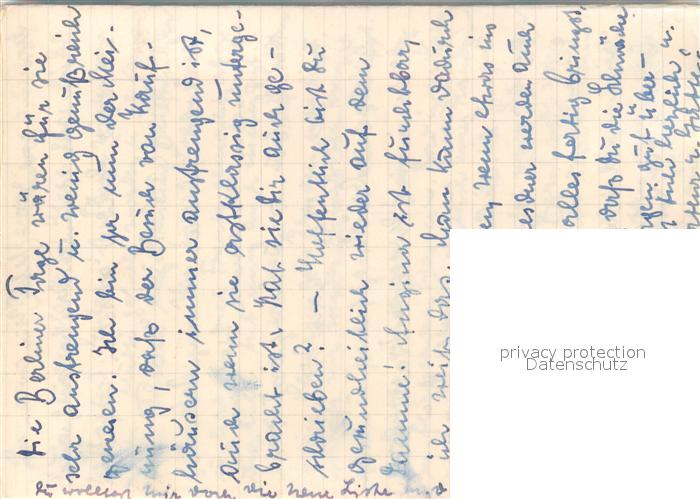 Die Berliner Tage wären für sie
sehr anstrengend u. wenig genußreich
gewesen. Ich bin ja nun der Mei-
nung, daß der Besuch von Kauf-
häusern immer anstrengend ist,
auch wenn sie erstklassig unterge-
bracht ist. Hat sie Dir auch ge-
schrieben? – Hoffentlich bist Du
gesundheitlich wieder auf dem
Damm! Angina ist furchtbar,
ich weiß das. Man kann dadurch
wenn etwas ins
werden auch
alles fertig bringst,
daß Du die Schwäche
gut über-
herzlich u.
Du wolltest mir doch die neue Liste
privacy protection
Datenschutz